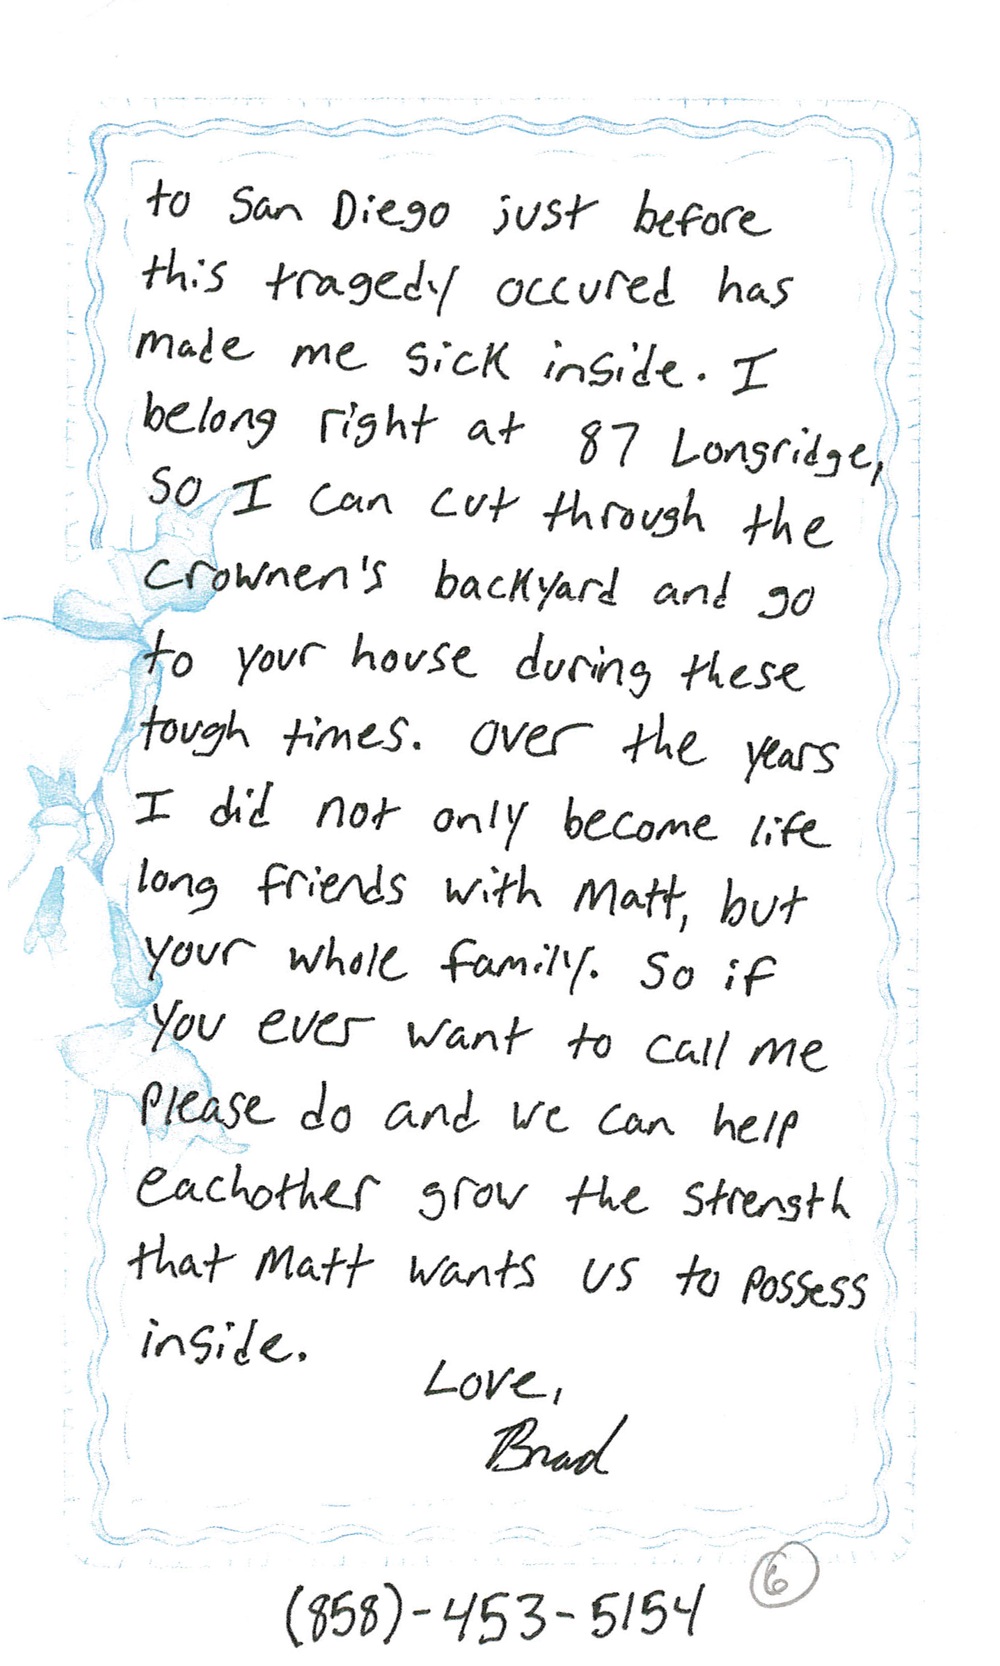 to San Diego just before
this tragedy occured has
made me sick inside. I
belong right at 87 Longridge,
so I can cut through the
Crownen's backyard and go
to your house during these
tough times. Over the years
I did not only become life
long friends with Matt, but
your whole family. So if
you ever want to call me
please do and we can help
eachother grow the strength
that Matt wants us to possess
inside.
Love,
Brad
6
(858)-453-5154